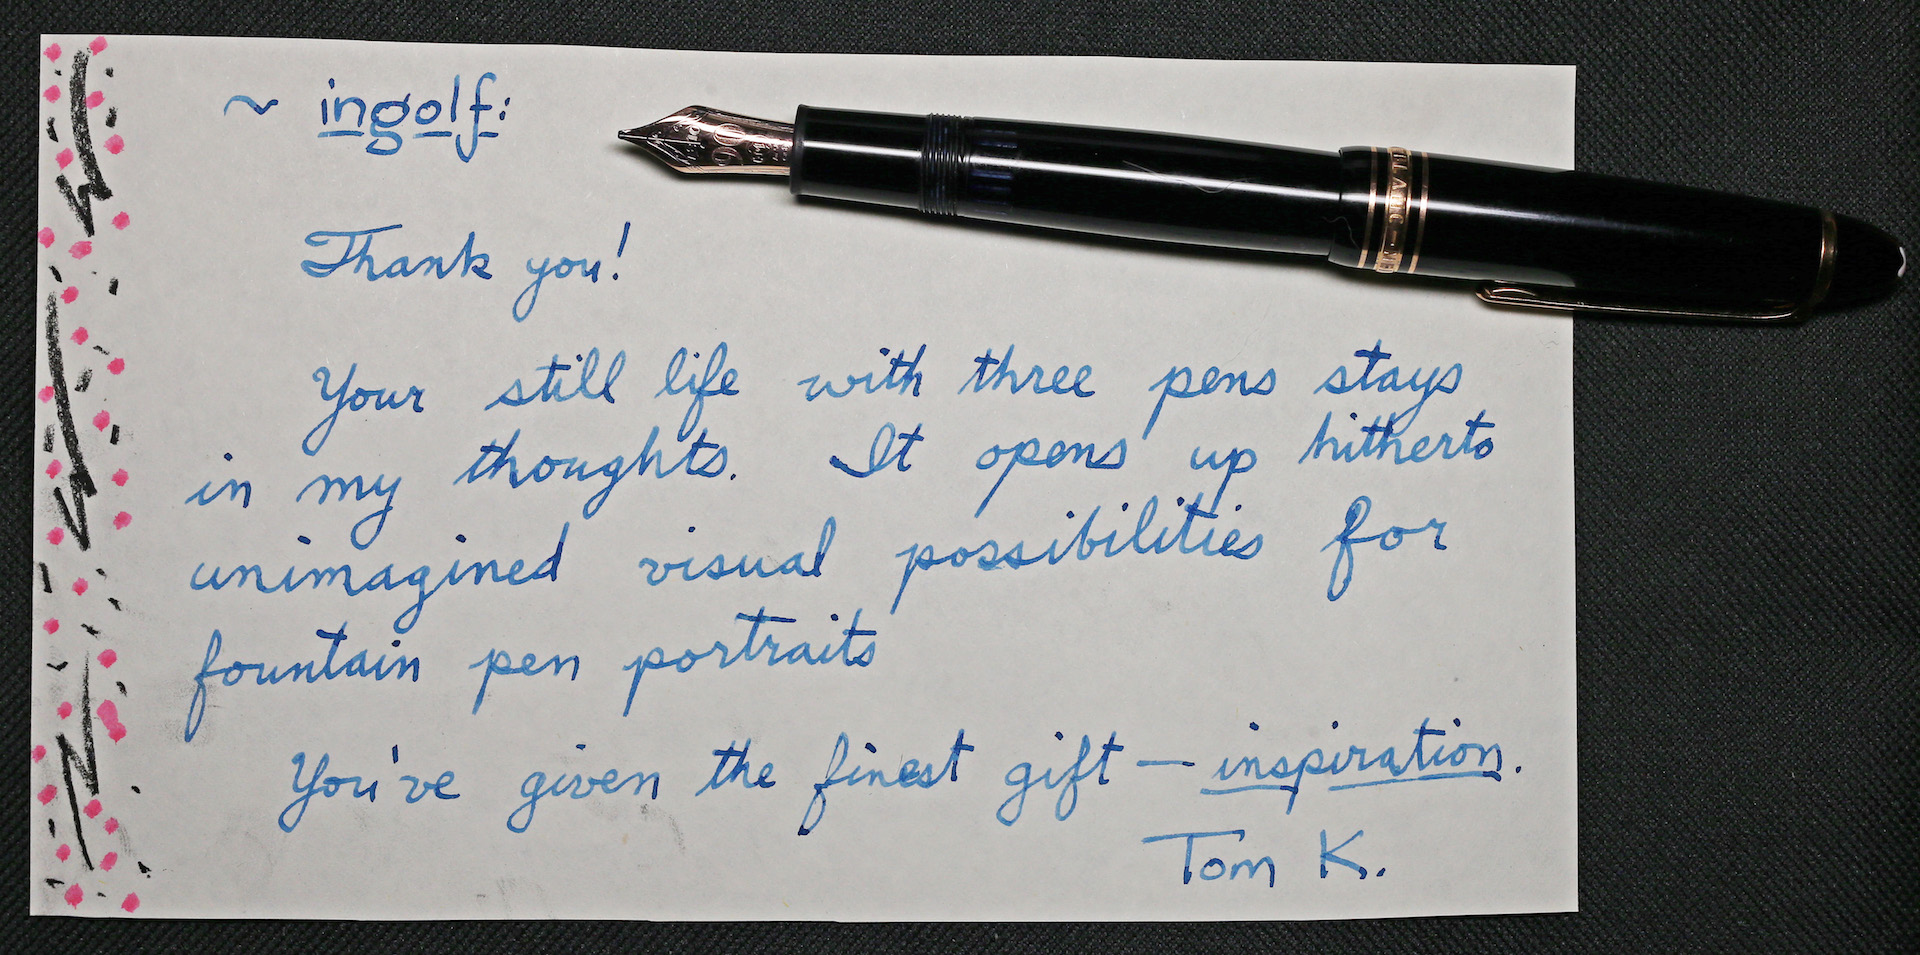 ~ ingolf:
Thank you!
Your still life with three pens stays
in my thoughts. It opens up hitherto
unimagined visual possibilities for
fountain pen portraits
You've given the finest gift — inspiration.
Tom K.